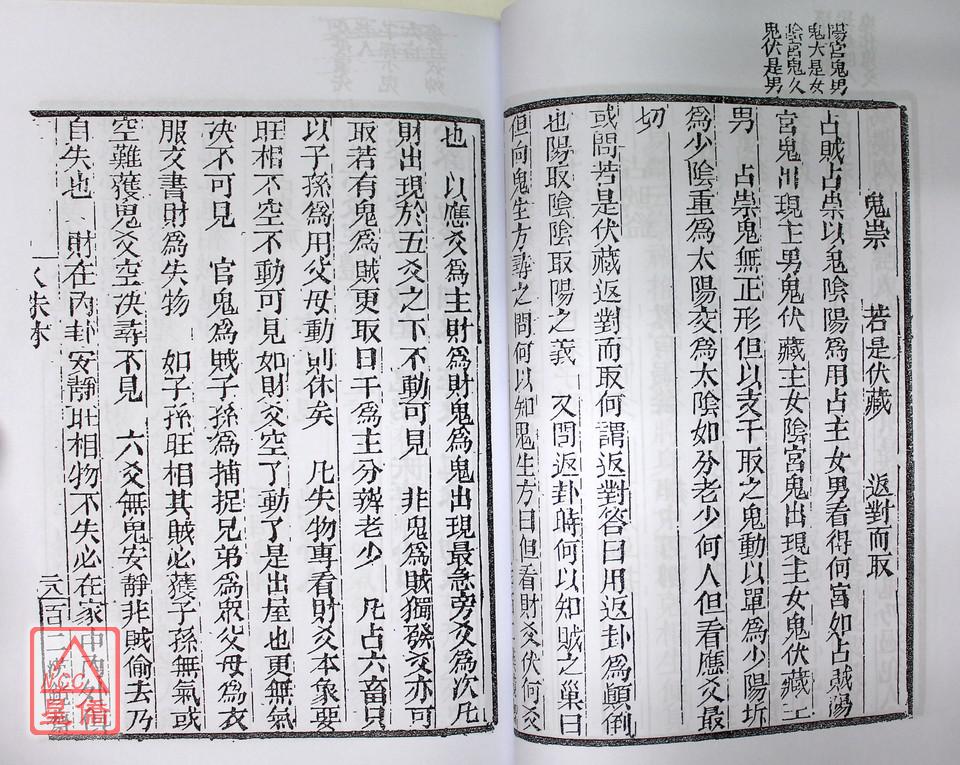 陽宮鬼男
鬼大是女
陰宮鬼久
鬼伏是男
鬼祟 若是伏藏 返對而取
占賊占祟以鬼陰陽爲用占主女男看得何宮如占賊陽
宮鬼出現主男鬼伏藏主女陰宮鬼出現主女鬼伏藏主
男 占祟鬼無正形但以支干取之鬼動以單爲少陽坼
爲少陰重爲太陽交爲太陰如分老少何人但看應爻最
切
或問若是伏藏返對而取何謂返對答曰用返卦爲顛倒
也陽取陰陰取陽之義 又問返卦時何以知賊之巢曰
但向鬼生方尋之問何以知鬼生方曰但看財爻伏何爻
也 以應爻爲主財爲財鬼爲鬼出現最急旁爻爲次凡
財出現於五爻之下不動可見 非鬼爲賊獨發爻亦可
取若有鬼爲賊更取日干爲主分辨老少 凡占六畜只
以子孫爲用父母動則休矣 凡失物專看財爻本象要
旺相不空不動可見如財爻空了動了是出屋也更無氣
決不可見 官鬼爲賊子孫爲捕捉兄弟爲衆父母爲衣
服文書財爲失物 如子孫旺相其賊必獲子孫無氣或
空難獲鬼爻空決尋不見 六爻無鬼安靜非賊偷去乃
自失也 財在內卦安靜旺相物不失必在家中內
失
六百二
NCC
皇佑